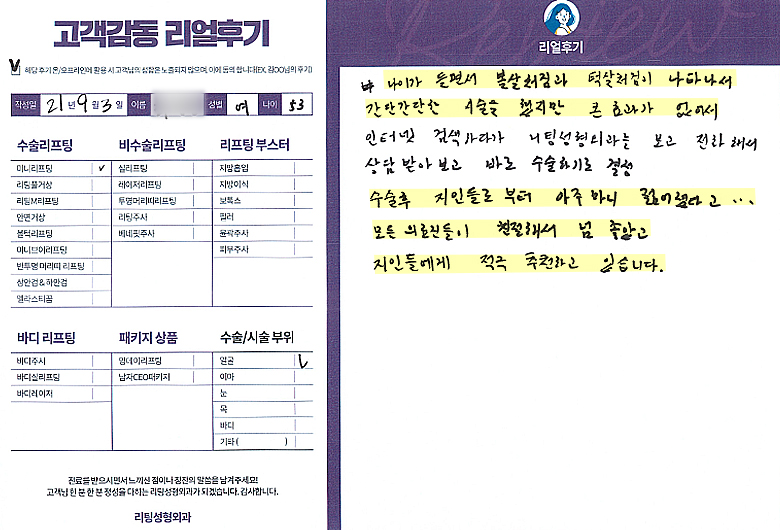 고객감동 리얼후기
해당 후기 온/오프라인에 활용 시 고객님의 성함은 노출되지 않으며, 이에 동의 합니다(EX, 김OO님의 후기)
작성일 21년 9월 3일 이름 성별 여 나이 53
수술리프팅 비수술리프팅 리프팅 부스터
미니리프팅 ✓ 실리프팅 지방흡입
리팅풀거상 레이저리프팅 지방이식
리팅M리프팅 투명머리띠리프팅 보톡스
안면거상 리팅주사 필러
원턱리프팅 베네핏주사 윤곽주사
미니브이리프팅 피부주사
반투명 머리띠 리프팅
상안검 & 하안검
엘라스티꿈
바디 리프팅 패키지 상품 수술/시술 부위
바디주사 원데이리프팅 얼굴 ✓
바디실리프팅 남자CEO패키지 이마
바디레이저 눈
목
바디
기타 ( )
진료를 받으시면서 느끼신 점이나 칭찬의 말씀을 남겨주세요!
고객님 한 분 한 분 정성을 다하는 리팅성형외과가 되겠습니다. 감사합니다.
리팅성형외과
리얼후기
나이가 들면서 볼살쳐짐과 턱살쳐짐이 나타나서
간단간단한 시술을 했지만 큰 효과가 없어서
인터넷 검색하다가 리팅성형외과를 보고 전화해서
상담 받아보고 바로 수술하기로 결정
수술후 지인들로 부터 아주 마니 젊어졌다고 ...
모든 의료진들이 친절해서 넘 좋았고
지인들에게 적극 추천하고 있습니다.